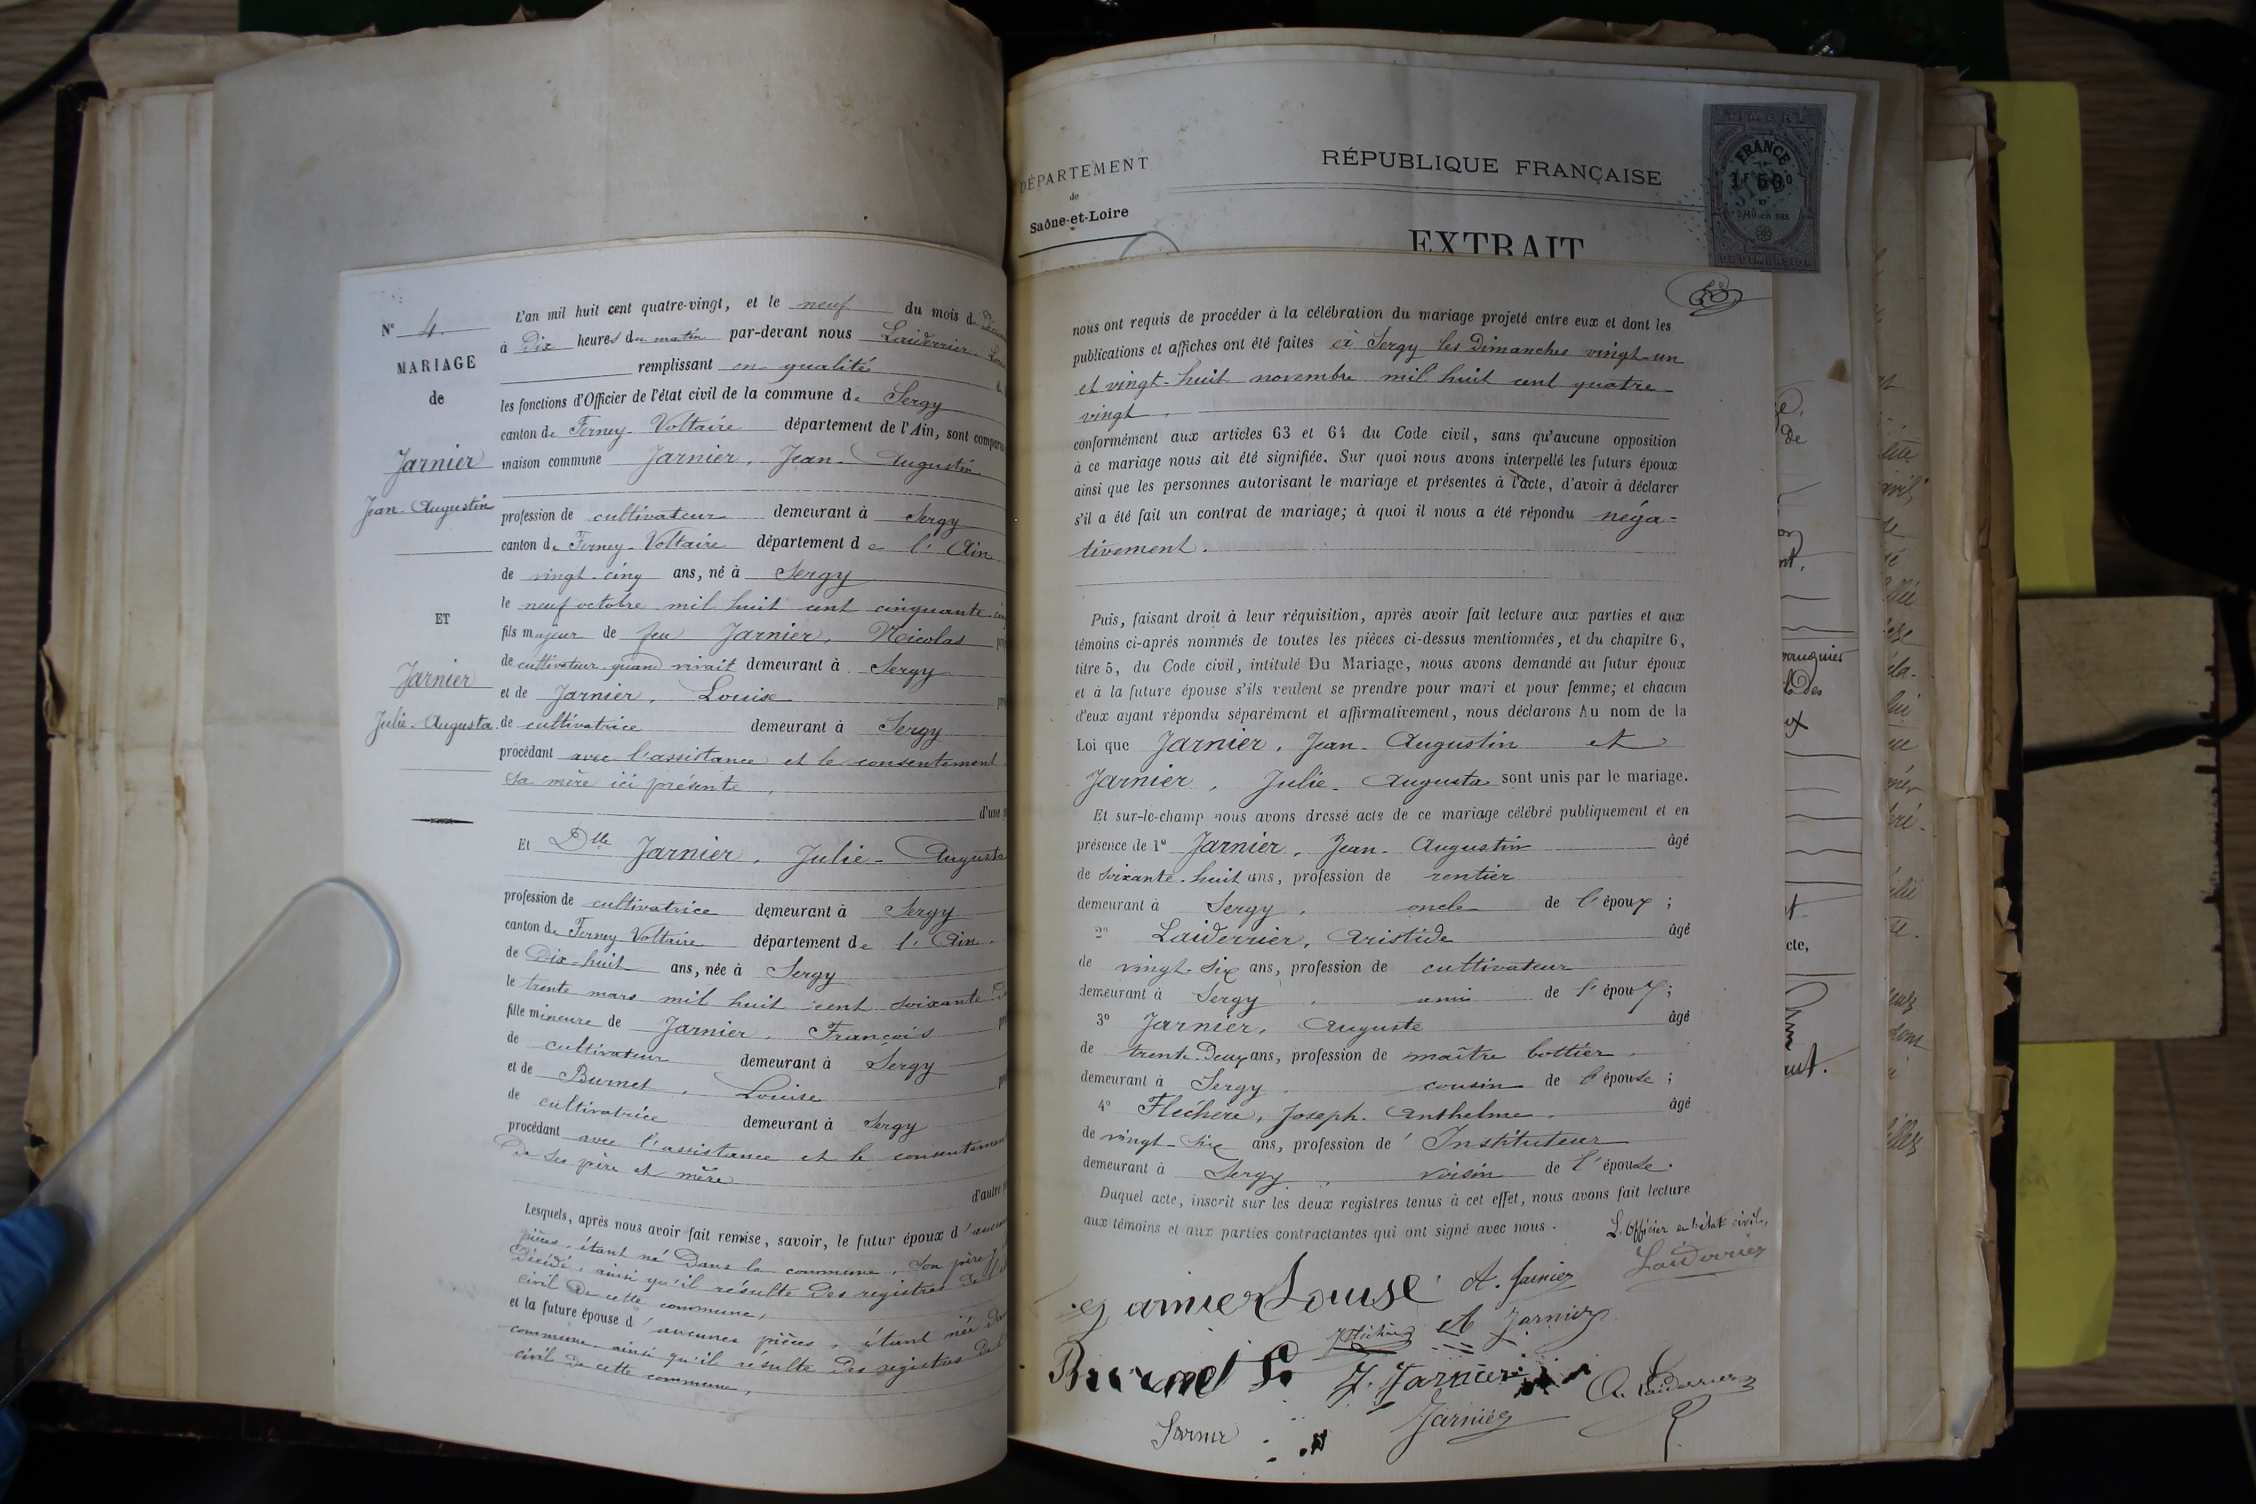 N° 4.
MARIAGE
de
Jarnier
Jean-Augustin
ET
Jarnier
Julie-Augusta
L'an mil huit cent quatre-vingt, et le neuf du mois d
à Dix heures du matin par-devant nous Laiderrier
remplissant en qualité
les fonctions d'Officier de l'état civil de la commune de Sergy
canton de Ferney-Voltaire département de l'Ain, sont
maison commune Jarnier, Jean-Augustin
profession de cultivateur demeurant à Sergy
canton de Ferney-Voltaire département de l'Ain
de vingt-cinq ans, né à Sergy
le neuf octobre mil huit cent cinquante
fils majeur de feu Jarnier, Nicolas
de cultivateur quand vivait demeurant à Sergy
et de Jarnier, Louise
de cultivatrice demeurant à Sergy
procédant avec l'assistance et le consentement
sa mère ici présente,
d'une
Et Dlle Jarnier, Julie-Augusta
profession de cultivatrice demeurant à Sergy
canton de Ferney-Voltaire département de l'Ain.
de Dix-huit ans, née à Sergy
le trente mars mil huit cent soixante
fille mineure de Jarnier, François
de cultivateur demeurant à Sergy
et de Burnet, Louise
de cultivatrice demeurant à Sergy
procédant avec l'assistance et le consentement
De ses père et mère
d'autre
Lesquels, après nous avoir fait remise, savoir, le futur époux d'
pièces, étant né Dans la commune, Son père
Décédé, ainsi qu'il résulte Des registres
civil De cette commune,
et la future épouse d'aucunes pièces, étant née
commune ainsi qu'il résulte Des registres
civil De cette commune,
DÉPARTEMENT
de
Saône-et-Loire
RÉPUBLIQUE FRANÇAISE
EXTRAIT
FRANCE
nous ont requis de procéder à la célébration du mariage projeté entre eux et dont les
publications et affiches ont été faites à Sergy les Dimanches vingt-un
et vingt-huit novembre mil huit cent quatre-
vingt.
conformément aux articles 63 et 64 du Code civil, sans qu'aucune opposition
à ce mariage nous ait été signifiée. Sur quoi nous avons interpellé les futurs époux
ainsi que les personnes autorisant le mariage et présentes à l'acte, d'avoir à déclarer
s'il a été fait un contrat de mariage; à quoi il nous a été répondu néga-
tivement.
Puis, faisant droit à leur réquisition, après avoir fait lecture aux parties et aux
témoins ci-après nommés de toutes les pièces ci-dessus mentionnées, et du chapitre 6,
titre 5, du Code civil, intitulé Du Mariage, nous avons demandé au futur époux
et à la future épouse s'ils veulent se prendre pour mari et pour femme; et chacun
d'eux ayant répondu séparément et affirmativement, nous déclarons Au nom de la
Loi que Jarnier, Jean-Augustin et
Jarnier, Julie-Augusta sont unis par le mariage.
Et sur-le-champ nous avons dressé acte de ce mariage célébré publiquement et en
présence de 1° Jarnier, Jean-Augustin âgé
de soixante-huit ans, profession de rentier
demeurant à Sergy, oncle de l'époux;
2° Laiderrier, Aristide âgé
de vingt-six ans, profession de cultivateur
demeurant à Sergy, ami de l'époux;
3° Jarnier, Auguste âgé
de trente-Deux ans, profession de maître bottier.
demeurant à Sergy, cousin de l'épouse;
4° Fléchère, Joseph-Anthelme, âgé
de vingt-six ans, profession de Instituteur
demeurant à Sergy, voisin de l'épouse.
Duquel acte, inscrit sur les deux registres tenus à cet effet, nous avons fait lecture
aux témoins et aux parties contractantes qui ont signé avec nous.
L'Officier de l'état civil,
Laiderrier
Jarnier Louise A. Jarnier
A Jarnier
Burnet L. J. Jarnier A. Laiderrier
Jarnier